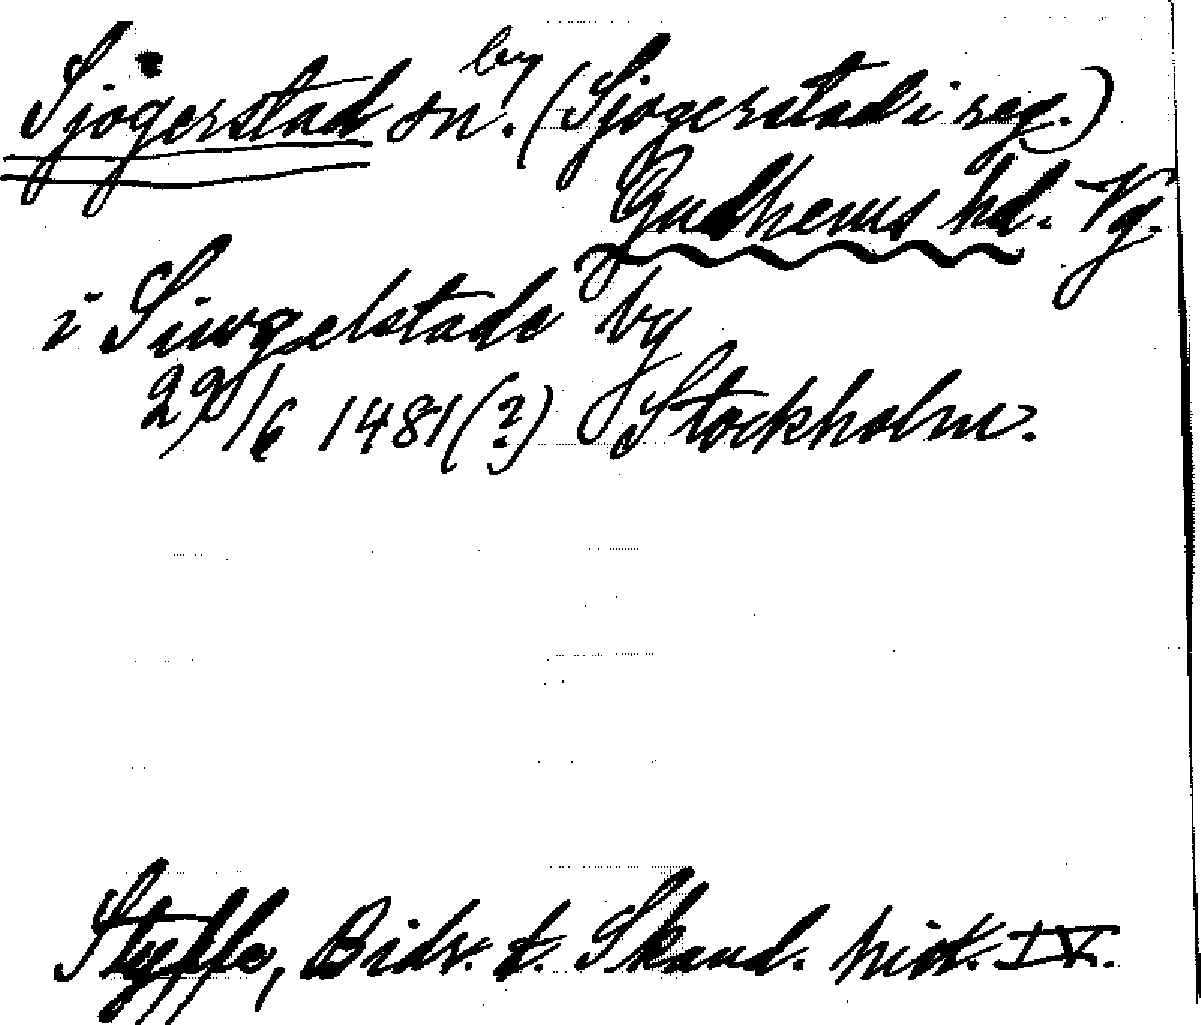 Sjögerstad sn. by (Sjögerstad i reg.)
Gudhems hd. Vg.
i Siwgelstade by
29/6 1481(?) Stockholm.
Styffe, Bidr. t. Skand. hist. IV.